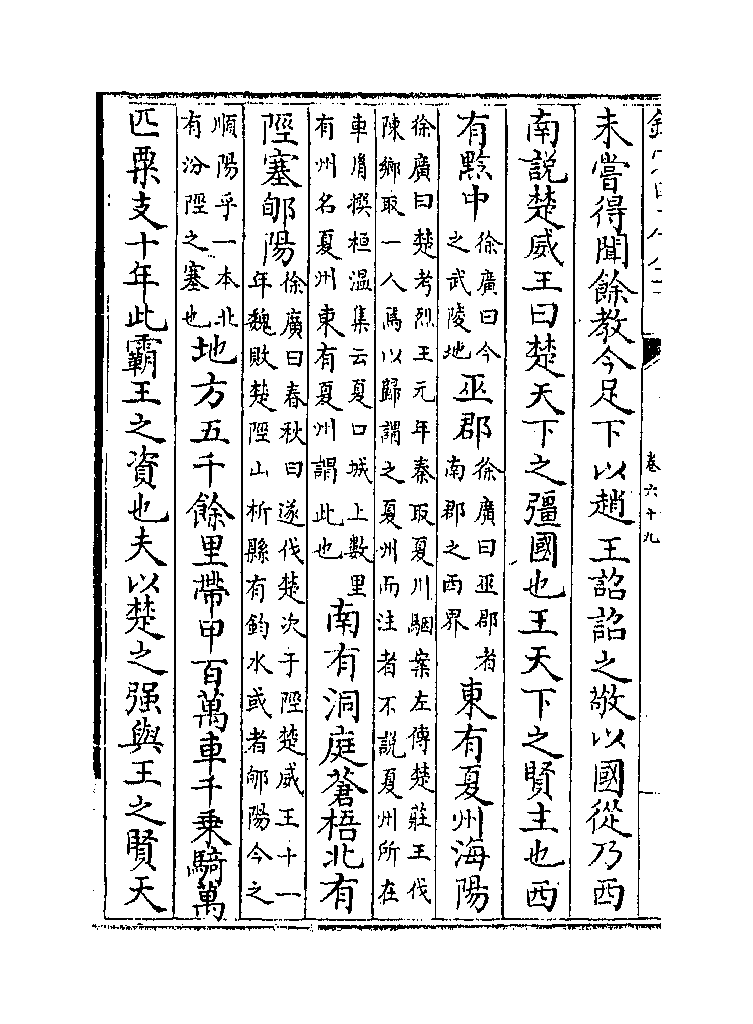 卷六十九
未嘗得聞餘教今足下以趙王詔詔之敬以國從乃西
南説楚威王曰楚天下之彊國也王天下之賢主也西
有黔中
徐廣曰今
之武陵地
巫郡
徐廣曰巫郡者
南郡之西界
東有夏州海陽
徐廣曰楚考烈王元年秦取夏川駰案左傳楚莊王伐
陳鄉取一人焉以歸謂之夏州而注者不説夏州所在
車胤撰桓溫集云夏口城上數里
有州名夏州東有夏州謂此也
南有洞庭蒼梧北有
陘塞郇陽
徐廣曰春秋曰遂伐楚次于陘楚威王十一
年魏敗楚陘山析縣有鈞水或者郇陽今之
順陽乎一本北
有汾陘之塞也
地方五千餘里帶甲百萬車千乘騎萬
匹粟支十年此霸王之資也夫以楚之强與王之賢天